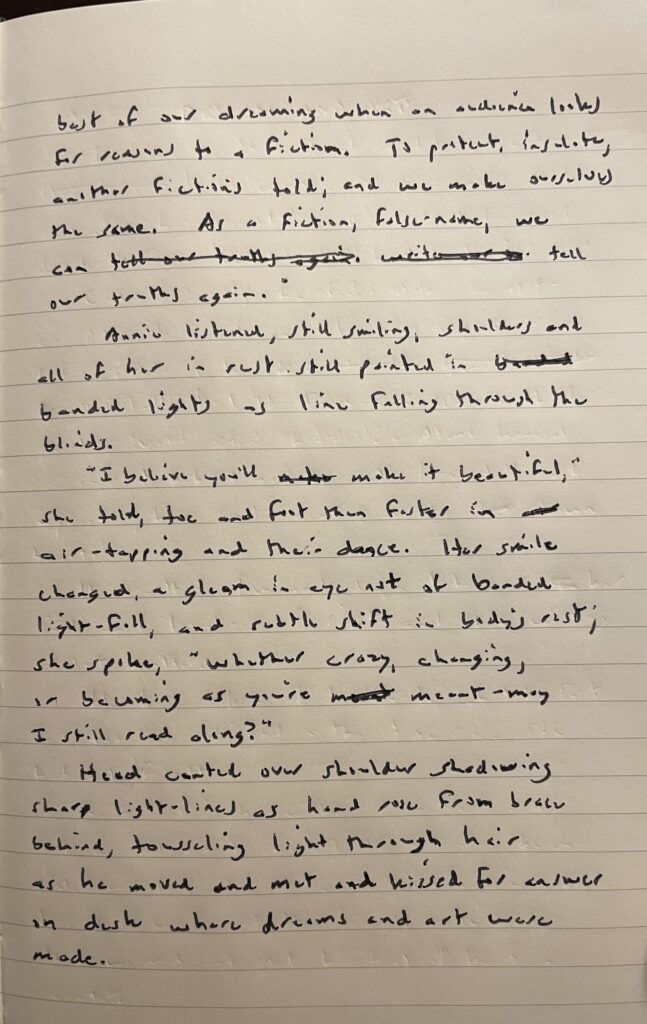 best of our dreaming when an audience looks
for reasons to a fiction. To protect, insulate,
another fiction's told; and we make ourselves
the same. As a fiction, false-name, we
can tell our truths again. write our tell
our truths again."
Annie listened, still smiling, shoulders and
all of her in rest still painted in banded
banded lights as line falling through the
blinds.
"I believe you'll make it beautiful,"
she told, toe and foot then faster in
air-tapping and their dance. Her smile
changed, a gleam in eye not of banded
light-fall, and subtle shift in body's rest;
she spoke, "Whether crazy, changing,
or becoming as you're meant meant-may
I still read along?"
Head canted over shoulder shadowing
sharp light-lines as hand rose from brace
behind, tousseling light through hair
as he moved and met and kissed for answer
in dusk where dreams and art were
made.